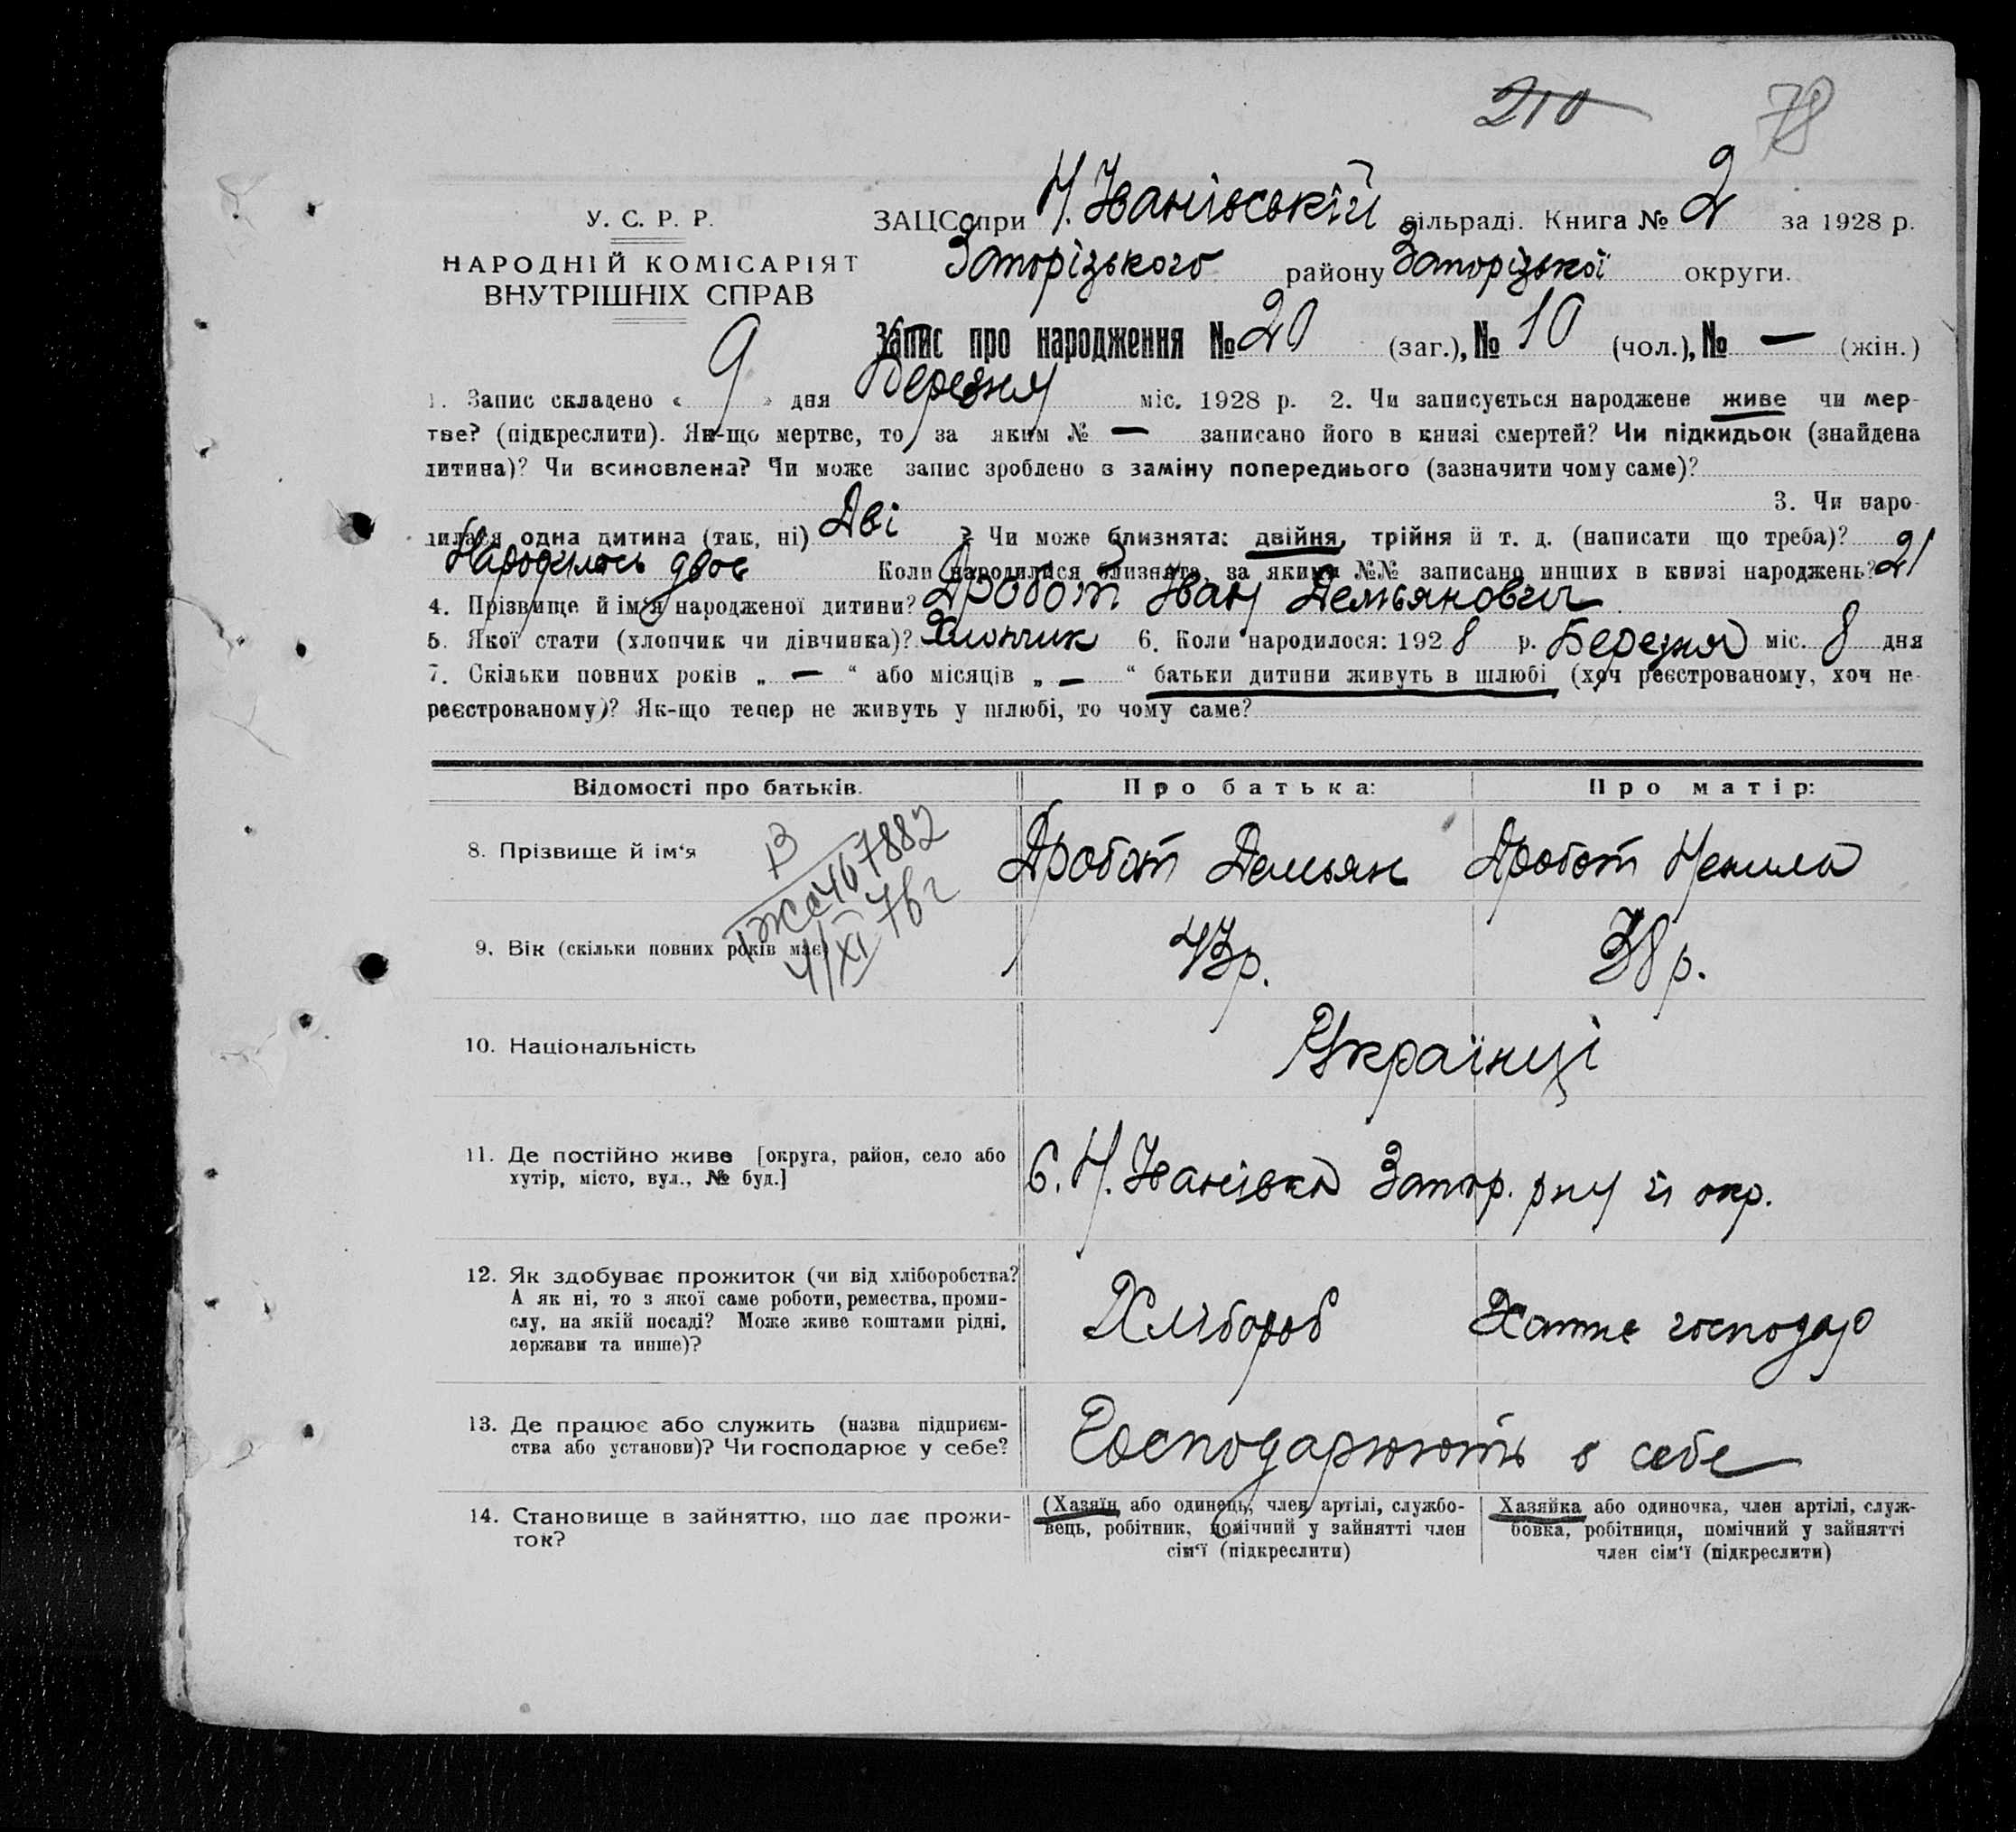 210 78
У. С. Р. Р.
НАРОДНІЙ КОМІСАРІЯТ
ВНУТРІШНІХ СПРАВ
ЗАЦС при Н. Іванівській сільраді. Книга № 2 за 1928 р.
Запорізького району Запорізької округи.
Запис про народження № 20 (заг.), № 10 (чол.), № — (жін.)
1. Запис складено « 9 » дня Березня міс. 1928 р. 2. Чи записується народжене живе чи мер-
тве? (підкреслити). Як-що мертве, то за яким № — записано його в книзі смертей? Чи підкидьок (знайдена
дитина)? Чи всиновлена? Чи може запис зроблено в заміну попереднього (зазначити чому саме)?
3. Чи наро-
дилася одна дитина (так, ні) Дві ? Чи може близнята: двійня, трійня й т. д. (написати що треба)?
Народилось двоє Коли народилися близнята, за якими №№ записано инших в книзі народжень? 21
4. Прізвище й ім'я народженої дитини? Дробот Іван Демьянович
5. Якої стати (хлопчик чи дівчинка)? Хлопчик 6. Коли народилося: 1928 р. Березня міс. 8 дня
7. Скільки повних років „ — “ або місяців „ — “ батьки дитини живуть в шлюбі (хоч реєстрованому, хоч не-
реєстрованому)? Як-що тепер не живуть у шлюбі, то чому саме?
Відомості про батьків. Про батька: Про матір:
8. Прізвище й ім'я Дробот Демьян Дробот Ненила
467882
4/XI 76 г
9. Вік (скільки повних років має) 43 р. 38 р.
10. Національність Українці
11. Де постійно живе [округа, район, село або
хутір, місто, вул., № буд.]
С. Н. Іванівка Запор. р-ну й окр.
12. Як здобуває прожиток (чи від хліборобства?
А як ні, то з якої саме роботи, ремества, проми-
слу, на якій посаді? Може живе коштами рідні,
держави та инше)?
Хлібороб Хатнє господар
13. Де працює або служить (назва підприєм-
ства або установи)? Чи господарює у себе?
Господарюють в себе
14. Становище в зайняттю, що дає прожи-
ток?
(Хазяїн або одинець, член артілі, службо-
вець, робітник, помічний у зайнятті член
сім'ї (підкреслити)
Хазяйка або одиночка, член артілі, служ-
бовка, робітниця, помічний у зайнятті
член сім'ї (підкреслити)